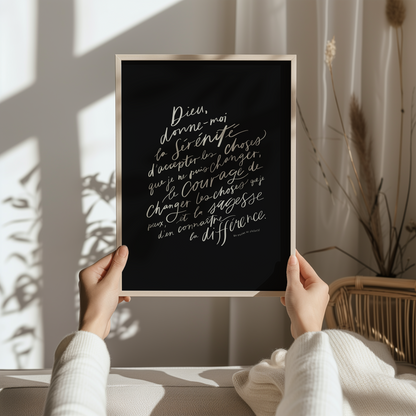 Dieu,
donne-moi
la Sérénité
d'accepter les choses
que je ne puis changer,
le Courage de
changer les choses que je
peux, et la sagesse
d'en connaître
la différence.